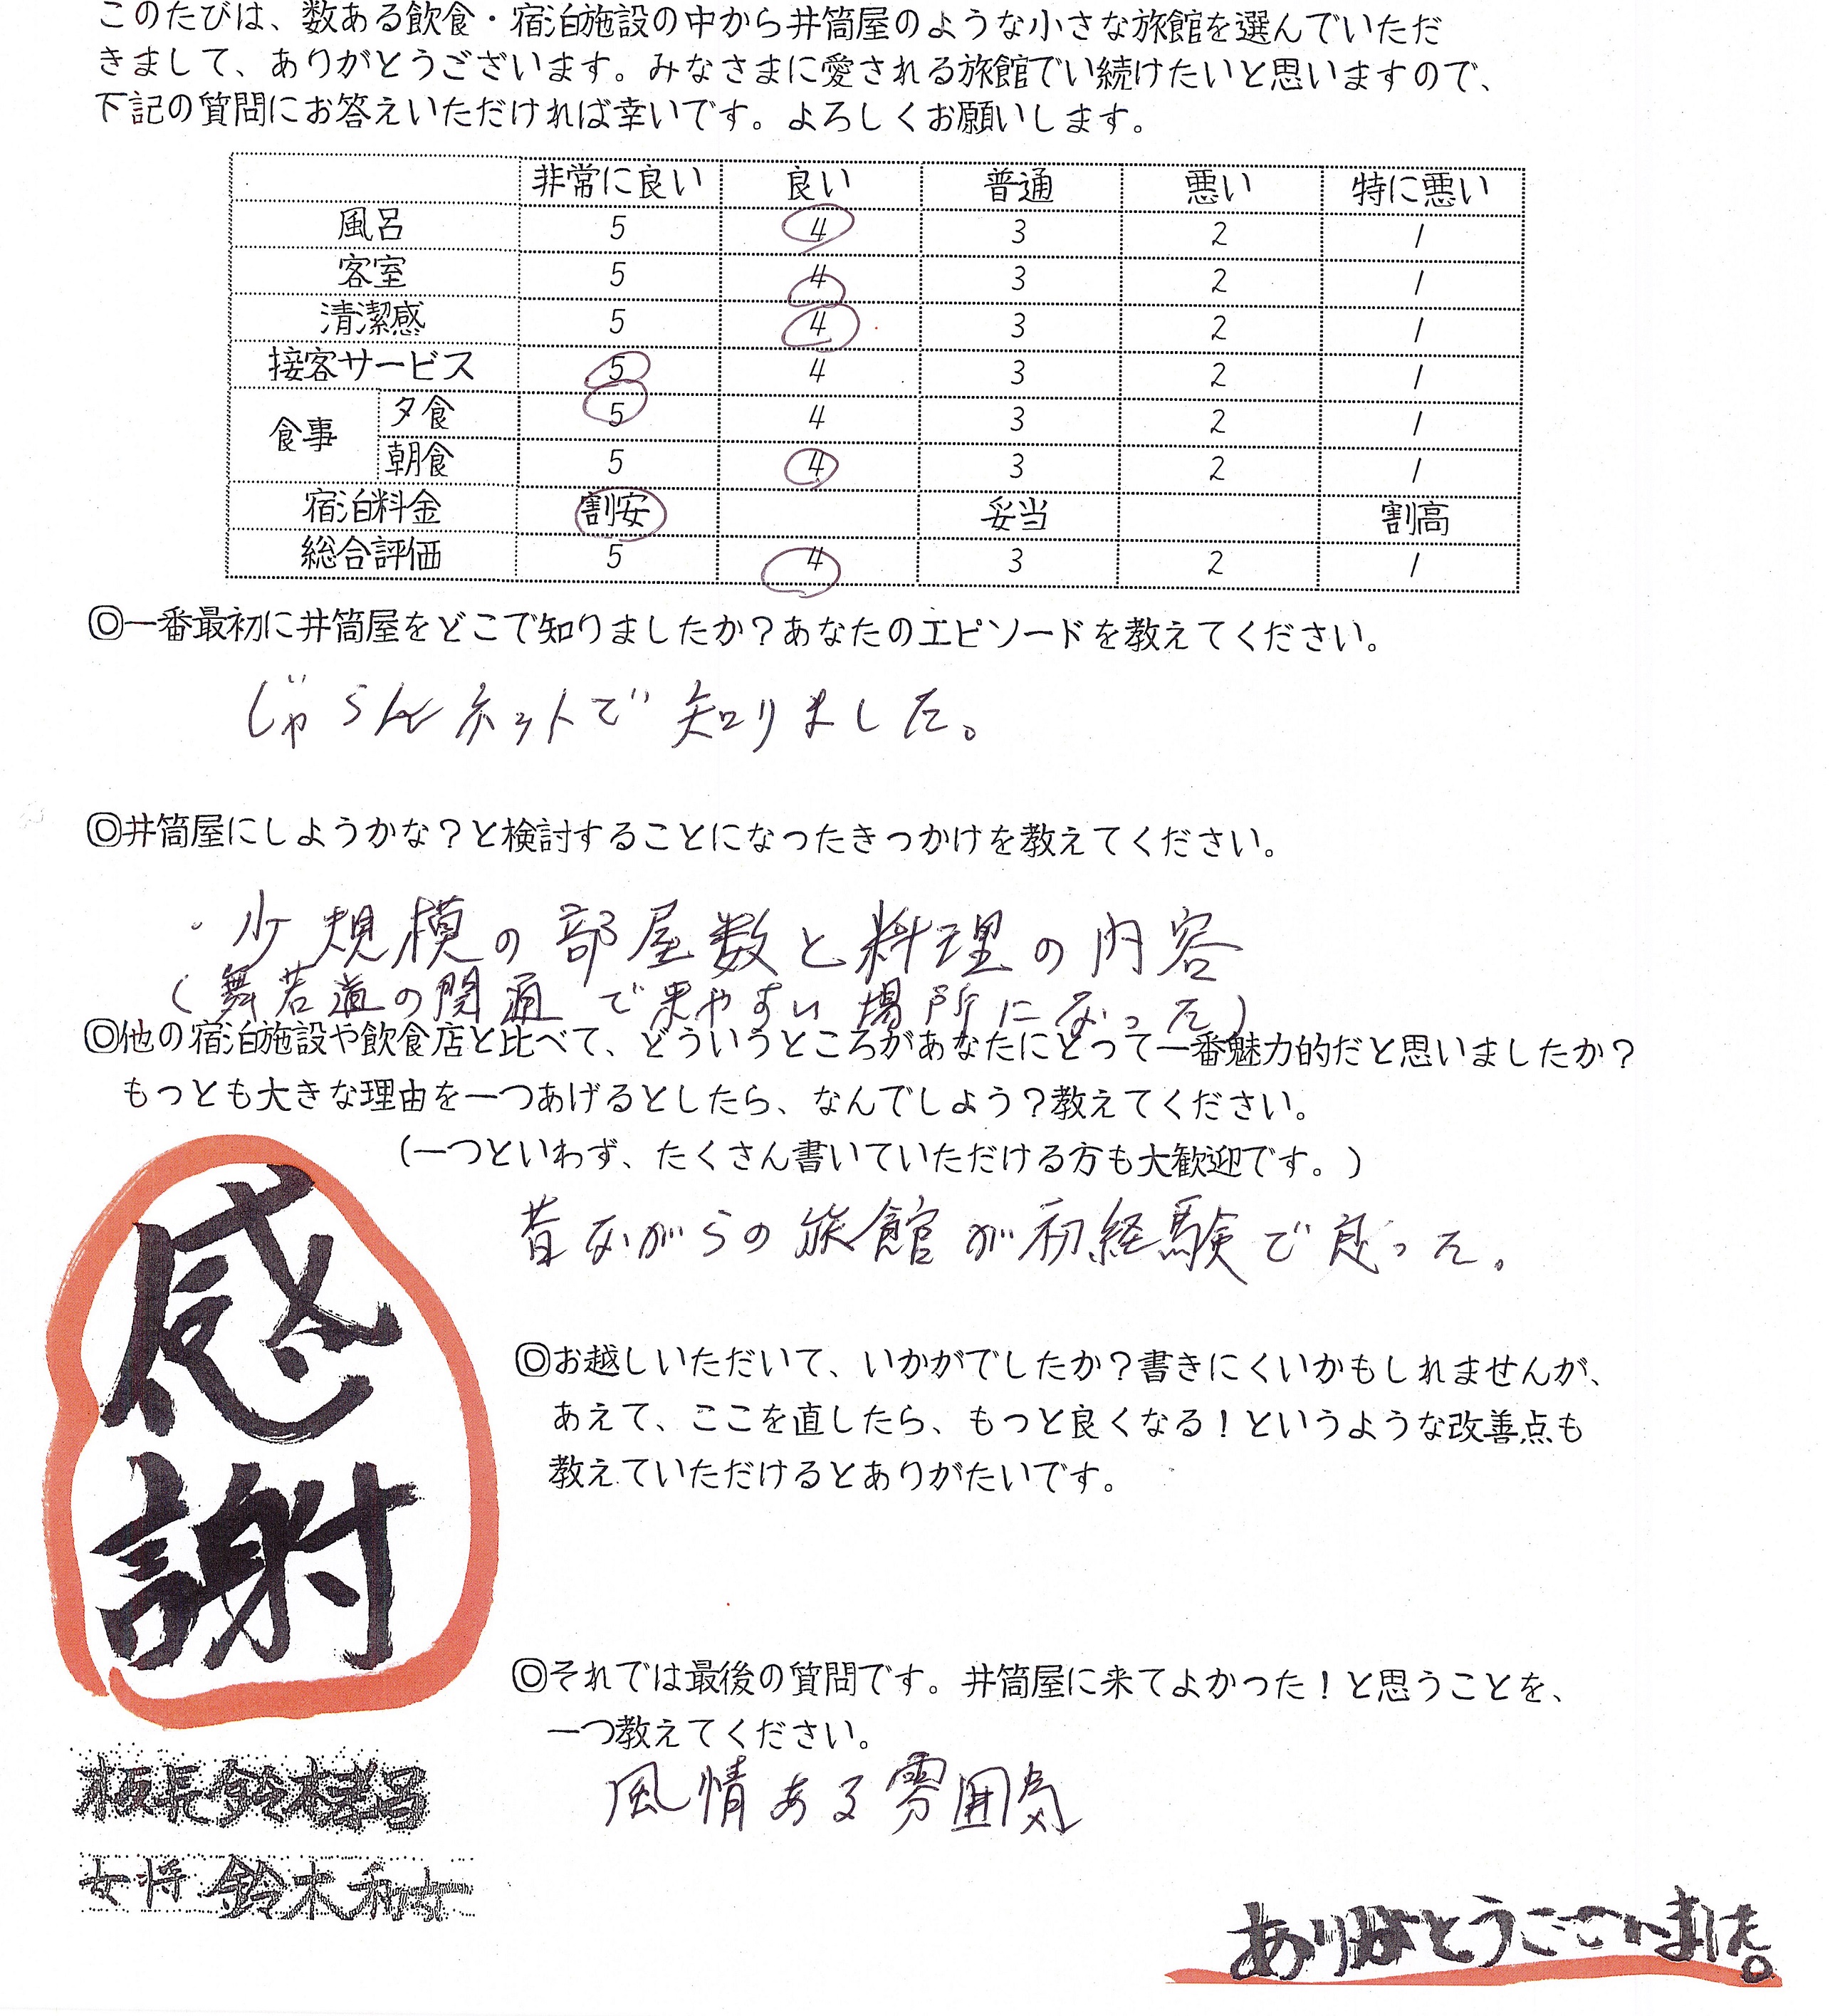 このたびは、数ある飲食・宿泊施設の中から井筒屋のような小さな旅館を選んでいただ
きまして、ありがとうございます。みなさまに愛される旅館でい続けたいと思いますので、
下記の質問にお答えいただければ幸いです。よろしくお願いします。
非常に良い 良い 普通 悪い 特に悪い
風呂 5 4 3 2 1
客室 5 4 3 2 1
清潔感 5 4 3 2 1
接客サービス 5 4 3 2 1
食事 夕食 5 4 3 2 1
朝食 5 4 3 2 1
宿泊料金 割安 妥当 割高
総合評価 5 4 3 2 1
◎一番最初に井筒屋をどこで知りましたか？あなたのエピソードを教えてください。
じゃらんネットで知りました。
◎井筒屋にしようかな？と検討することになったきっかけを教えてください。
・少規模の部屋数と料理の内容
(舞若道の開通で来やすい場所になった)
◎他の宿泊施設や飲食店と比べて、どういうところがあなたにとって一番魅力的だと思いましたか？
もっとも大きな理由を一つあげるとしたら、なんでしょう？教えてください。
(一つといわず、たくさん書いていただける方も大歓迎です。)
昔ながらの旅館が初経験で良った。
◎お越しいただいて、いかがでしたか？書きにくいかもしれませんが、
あえて、ここを直したら、もっと良くなる！というような改善点も
教えていただけるとありがたいです。
感謝
◎それでは最後の質問です。井筒屋に来てよかった！と思うことを、
一つ教えてください。
風情ある雰囲気
板長 鈴木
女将 鈴木
ありがとうございました。